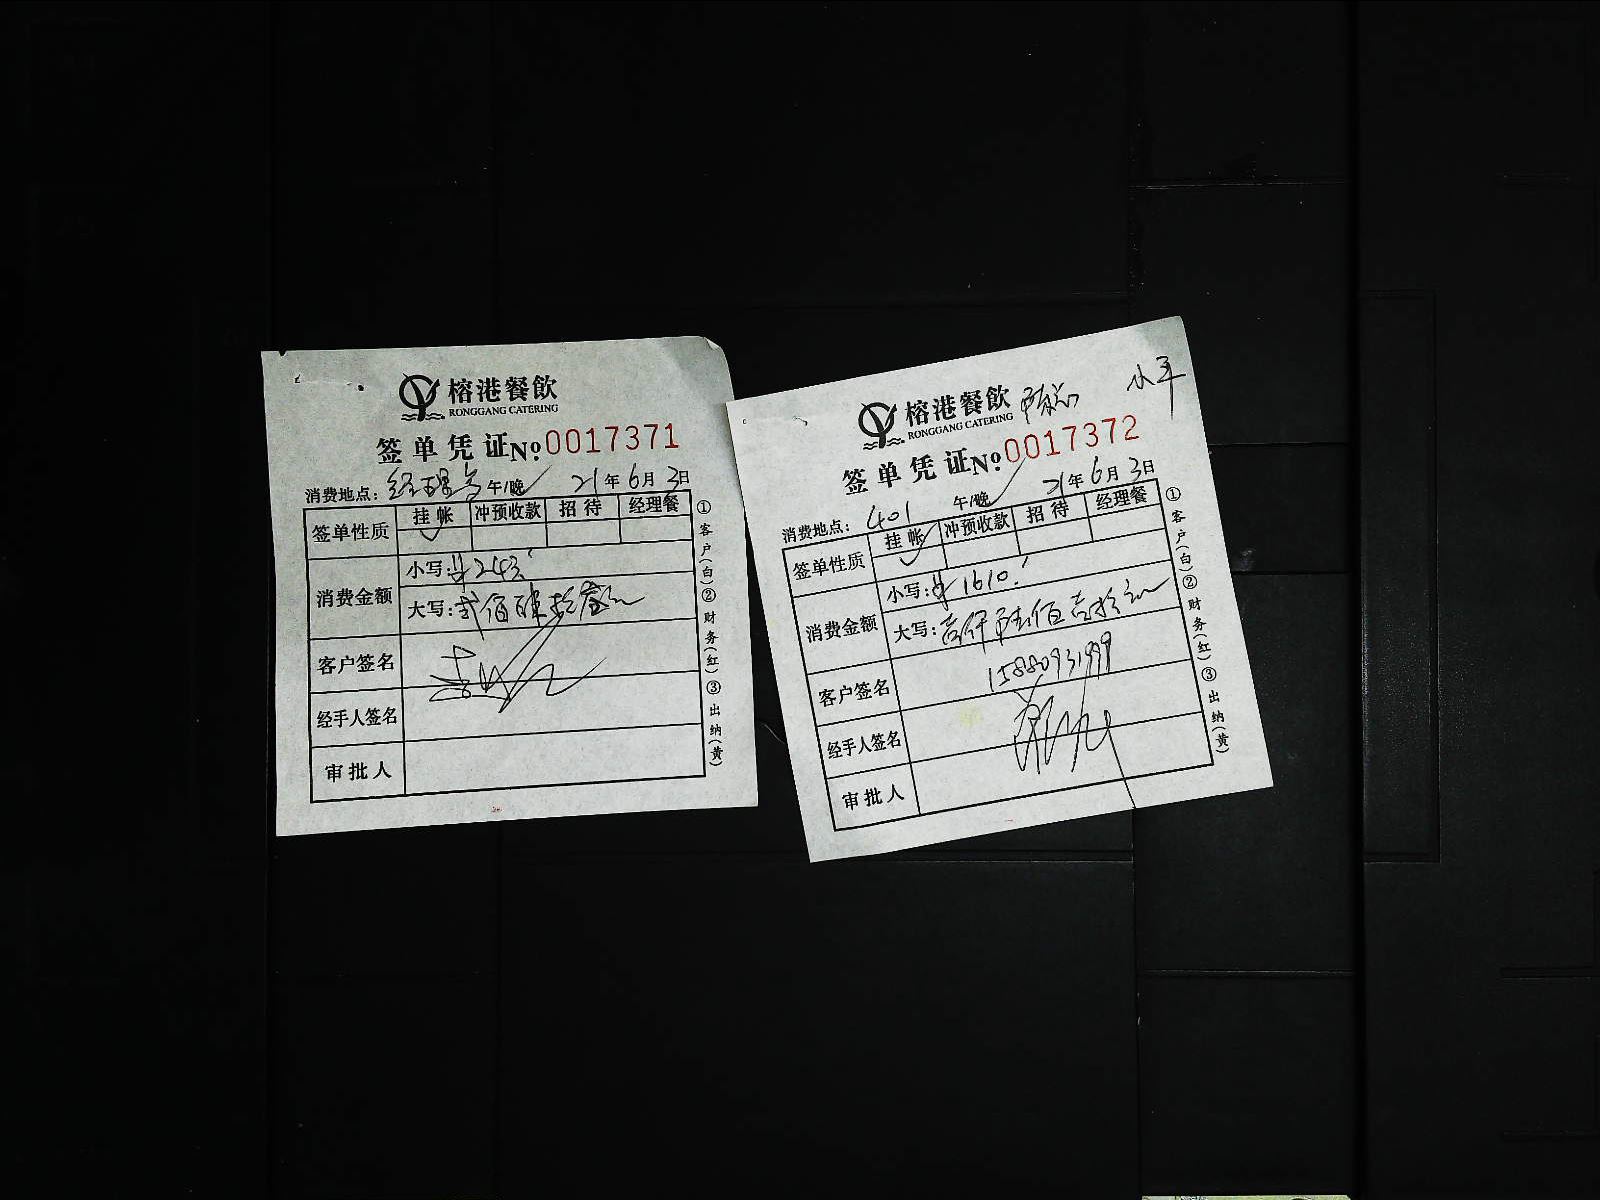 榕港餐飲
RONGGANG CATERING
签单凭证 No. 0017371
消费地点: 经理房 午/晚 21年6月3日
签单性质 挂帐 冲预收款 招待 经理餐
消费金额 小写: 243
大写: 贰佰肆拾叁元
客户签名
经手人签名
审批人
①客户(白)②财务(红)③出纳(黄)
小平
榕港餐飲
RONGGANG CATERING
签单凭证 No. 0017372
消费地点: 401 午/晚 21年6月3日
签单性质 挂帐 冲预收款 招待 经理餐
消费金额 小写: 1610
大写: 壹仟陆佰壹拾元
客户签名 15880931999
经手人签名
审批人
①客户(白)②财务(红)③出纳(黄)